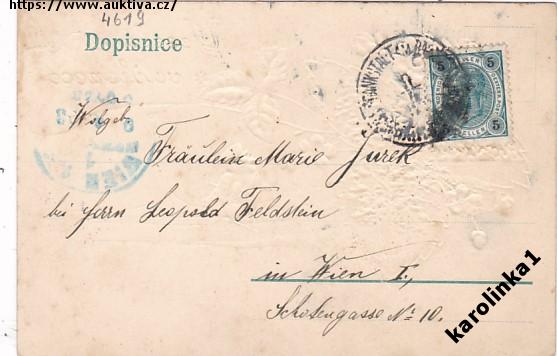 https://www.auktiva.cz/
4619
Dopisnice
5 5
5 5
WIEN
Wolgeb
Fräulein Marie Jurek
bei Herrn Leopold Feldstein
in Wien I.,
Schotengasse No 10.
karolinka1